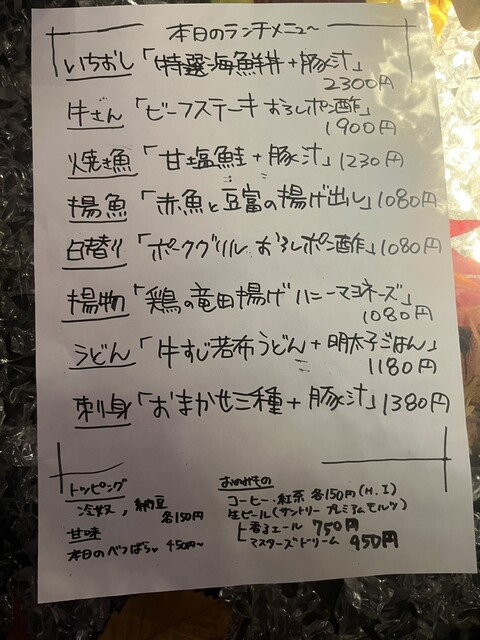 本日のランチメニュー
いちおし「特選海鮮丼+豚汁」
2300円
牛さん「ビーフステーキ おろしポン酢」
1900円
焼き魚「甘塩鮭+豚汁」1230円
揚魚「赤魚と豆富の揚げ出し」1080円
日替り「ポークグリル おろしポン酢」1080円
揚物「鶏の竜田揚げ ハニーマヨネーズ」
1080円
うどん「牛すじ若布うどん+明太子ごはん」
1180円
刺身「おまかせ三種+豚汁」1380円
トッピング
冷奴、納豆
各150円
甘味
本日のべつばら 450円〜
おのみもの
コーヒー・紅茶 各150円(H.I)
生ビール(サントリープレミアムモルツ)
香るエール 750円
マスターズドリーム 950円